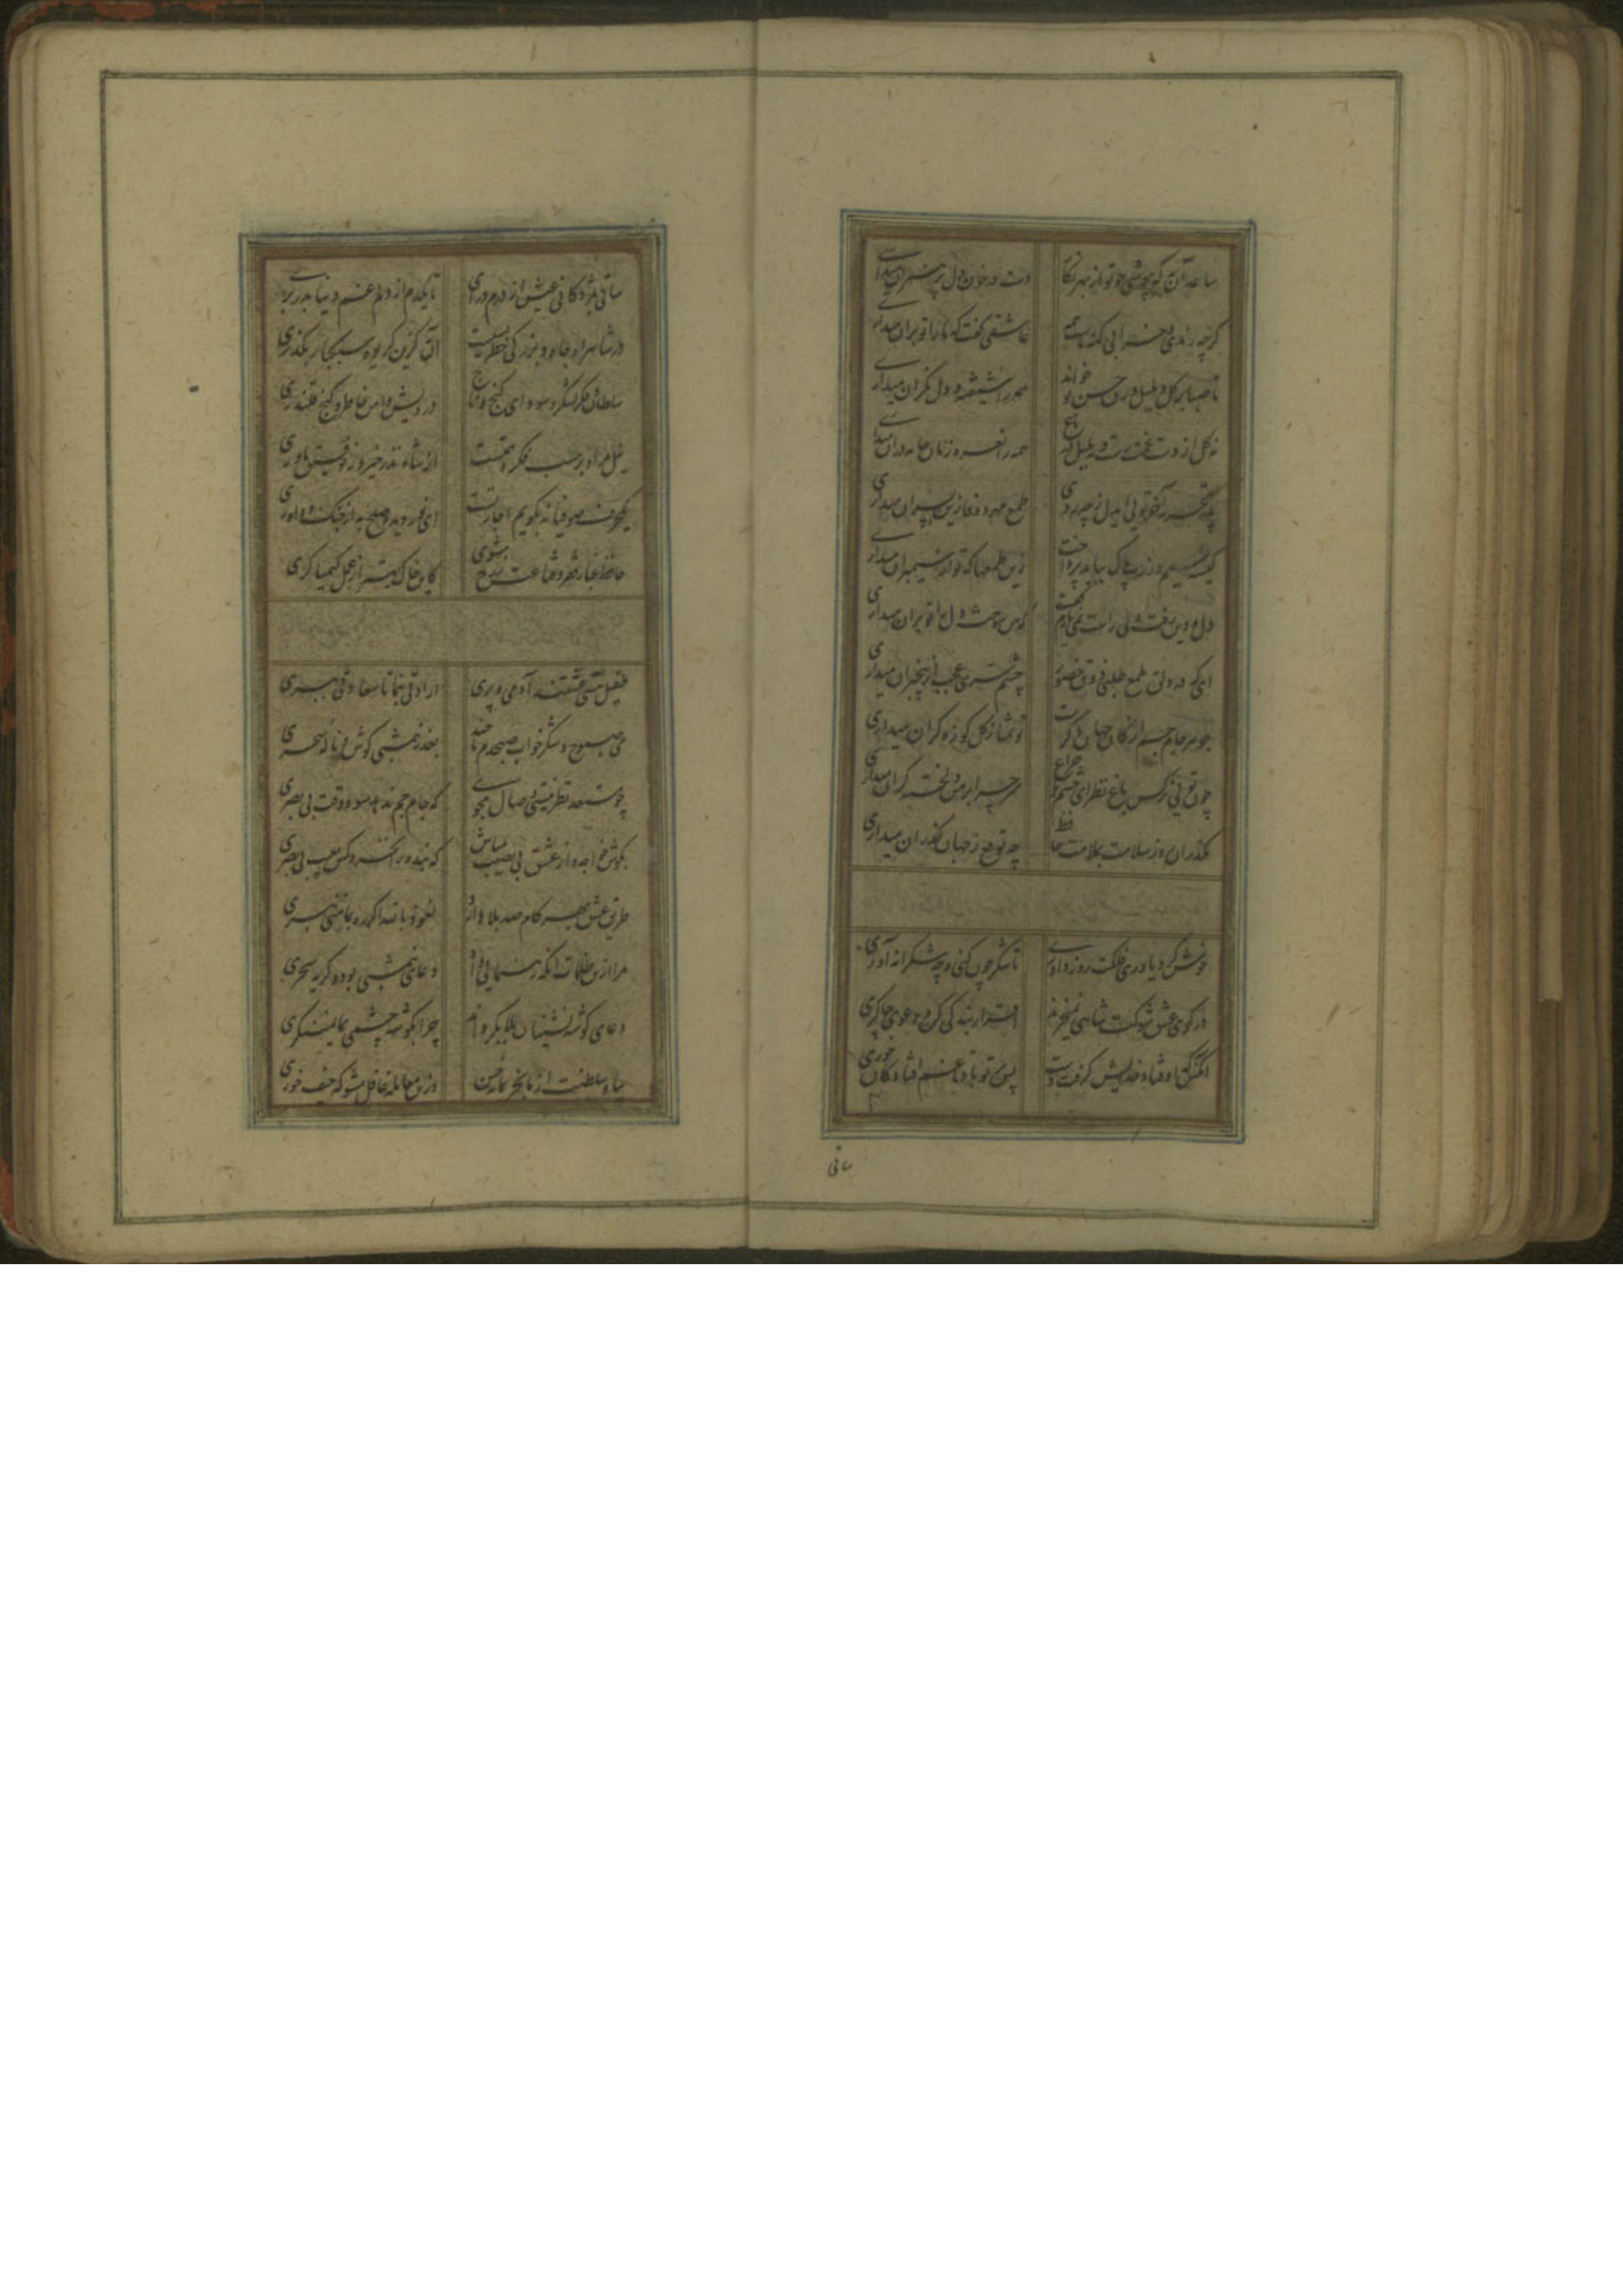 ساعد آن به که بپوشی چو تو از بهر نگار دست در خون دل پر هنران میداری
گرچه رندی و خرابی گنه ماست همه عاشقی گفت که ما را تو بران میداری
تا صبا بر گل و بلبل ورق حسن تو خواند همه را شیفته و دل نگران میداری
نه گل از دست غمت رست و نه بلبل در باغ همه را نعره زنان جامه دران میداری
پدر تجربه آخر تویی ای دل ز چه روی طمع مهر و وفا زین پسران میداری
کیسه سیم و زرت پاک بباید پرداخت زین طمعها که تو از سیمبران میداری
دل و دین رفت ولی راست نمی یارم گفت که من سوخته دل را تو بران میداری
ای که در دلق ملمع طلبی ذوق حضور چشم سری عجب از بیخبران میداری
جوهر جام جم از کان جهان دگرست تو تمنا ز گل کوزه گران میداری
چون تویی نرگس باغ نظر ای چشم و چراغ سر چرا بر من دلخسته گران میداری
مگذران روز سلامت بملامت حافظ چه توقع ز جهان گذران میداری
خوش کرد یاوری فلکت روز داوری تا شکر چون کنی و چه شکرانه آوری
در کوی عشق شوکت شاهی نمیخرند اقرار بندگی کن و دعوی چاکری
آنکس که اوفتاد خدایش گرفت دست پس تو باد تا غم افتادگان خوری
ساقی
ساقی بمژدگانی عیش از درم درآی تا یکدم از دلم غم دنیا بدر بری
در شاهراه جاه و بزرگی خطر بسیست آن به کزین گریوه سبکبار بگذری
سلطان و فکر لشکر و سودای گنج و تاج درویش و امن خاطر و کنج قلندری
نیل مراد بر حسب فکر و همتست از شاه نذر خیر و ز توفیق یاوری
یکحرف صوفیانه بگویم اجازتست ای نور دیده صلح به از جنگ و داوری
حافظ غبار فقر و قناعت ز رخ مشوی کاین خاک بهتر از عمل کیمیاگری
طفیل هستی عشقند آدمی و پری ارادتی بنما تا سعادتی ببری
می صبوح و شکر خواب صبحدم تا چند بعذر نیمشبی کوش و ناله سحری
چو مستعد نظر نیستی وصال مجوی که جام جم ندهد سود وقت بی بصری
بکوش خواجه و از عشق بی نصیب مباش که بنده را نخرد کس بعیب بی هنری
طریق عشق بهر گام صد بلا دارد نعوذ بالله اگر ره بمأمنی نبری
مرا ازین ظلمات آنکه رهنمایی داد دعای نیمشبی بود و گریه سحری
دعای گوشه نشینان بلا بگرداند چرا بگوشه چشمی بما نمینگری
بیا و سلطنت از ما بخر بمایه حسن وزین معامله غافل مشو که حیف خوری